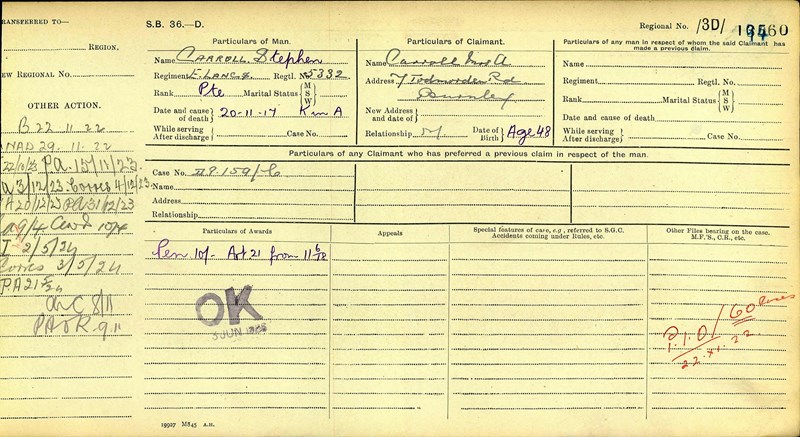 TRANSFERRED TO—
REGION.
NEW REGIONAL No.
OTHER ACTION.
B 22 11 22
29.11.22
22/10/23 P.A. 15/11/23
3/12/23 Corres 4/12/23
20/12/23 PA 31/12/23
2/5/24
Corres 3/5/24
P.A 21 5/24
8/11
9 11
S.B. 36.—D.
Regional No. /3D/
Particulars of Man.
Name CARROLL. Stephen
Regiment E. LANCS. Regtl. No. 5332
Rank Pte Marital Status { M S W }
Date and cause of death } 20-11-17 K in A
While serving
After discharge } Case No.
Particulars of Claimant.
Name Carroll Mrs A
Address 7 Todmorden Rd
Burnley
New Address and date of }
Relationship M Date of Birth } Age 48
Particulars of any man in respect of whom the said Claimant has made a previous claim.
Name
Regiment Regtl. No.
Rank Marital Status { M S W }
Date and cause of death
While serving
After discharge } Case No.
Particulars of any Claimant who has preferred a previous claim in respect of the man.
Case No.
Name
Address
Relationship
Particulars of Awards
Appeals
Special features of case, e.g., referred to S.G.C. Accidents coming under Rules, etc.
Other Files bearing on the case. M.F.'S., C.R., etc.
Pen 10/- Art 21 from 11 6/18
OK
3 JUN
P.1.0/60
22.XI.22
19927 M845 A.H.